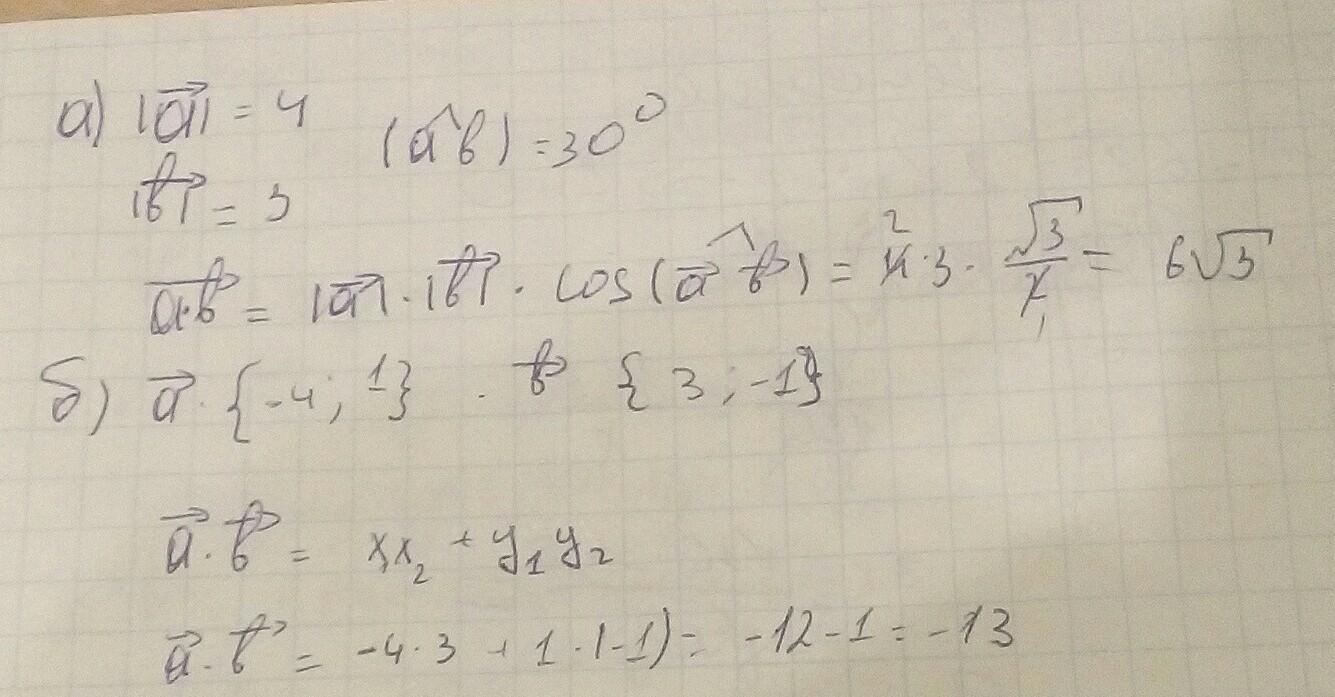 а) |a⃗| = 4 (a^b) = 30°
|b⃗| = 3
a⃗·b⃗ = |a⃗|·|b⃗|·cos(a⃗^b⃗) = 4·3·√3/2 = 6√3
2 1
б) a⃗·{-4; 1} · b⃗ {3; -1}
a⃗·b⃗ = x₁x₂ + y₁y₂
a⃗·b⃗ = -4·3 + 1·(-1) = -12-1 = -13